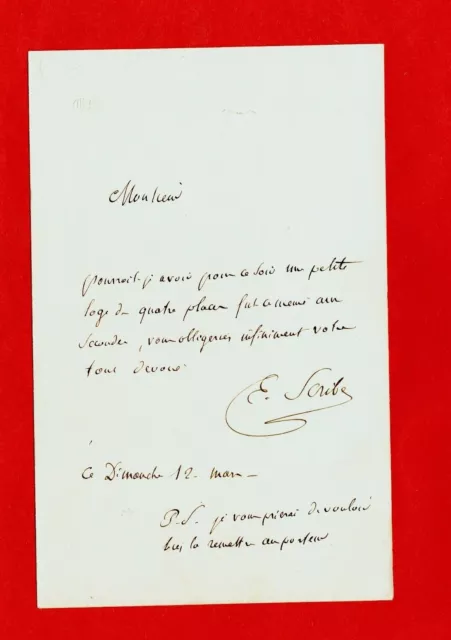 Monsieur
pourrais-je avoir pour ce soir une petite
loge de quatre places fut ce meme aux
secondes, vous obligerez infiniment votre
tout dévoué
E. Scribe
ce Dimanche 12 mars
P.S. je vous prierai de vouloir
bien la remettre au porteur